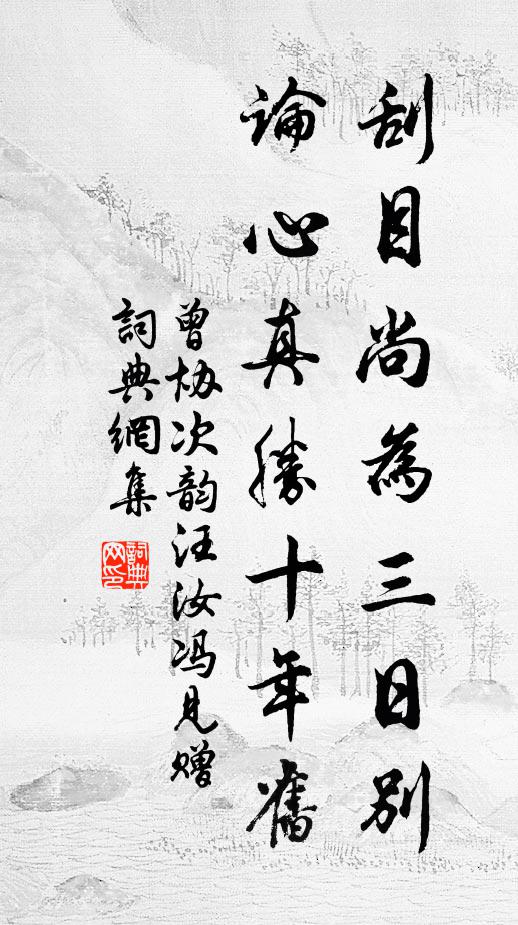 刮目尚為三日别
論心真勝十年舊
曾协次韵汪汝冯見赠
詞典網集
詞典网印